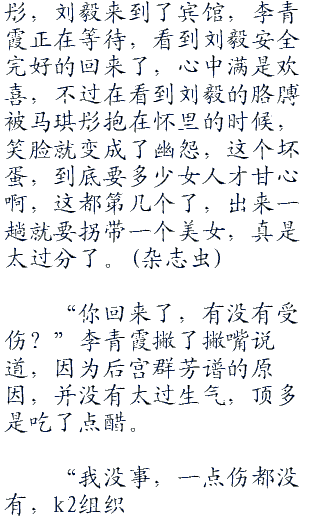 彤，刘毅来到了宾馆，李青
霞正在等待，看到刘毅安全
完好的回来了，心中满是欢
喜，不过在看到刘毅的胳膊
被马琪彤抱在怀里的时候，
笑脸就变成了幽怨，这个坏
蛋，到底要多少女人才甘心
啊，这都第几个了，出来一
趟就要拐带一个美女，真是
太过分了。(杂志虫)
“你回来了，有没有受
伤？”李青霞撇了撇嘴说
道，因为后宫群芳谱的原
因，并没有太过生气，顶多
是吃了点醋。
“我没事，一点伤都没
有，k2组织